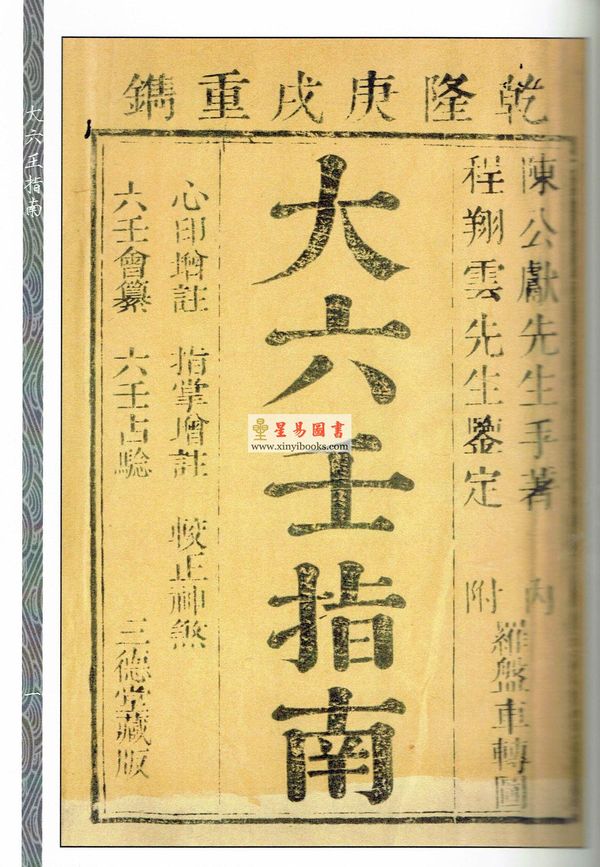 乾隆庚戌重鐫
陳公獻先生手著
程翔雲先生鑒定
內附
羅盤車轉圖
大六壬指南
心印增註 指掌增註 較正神煞
六壬會纂 六壬占驗 三德堂藏版
星易圖書
www.xinyibooks.com
大六壬指南
一